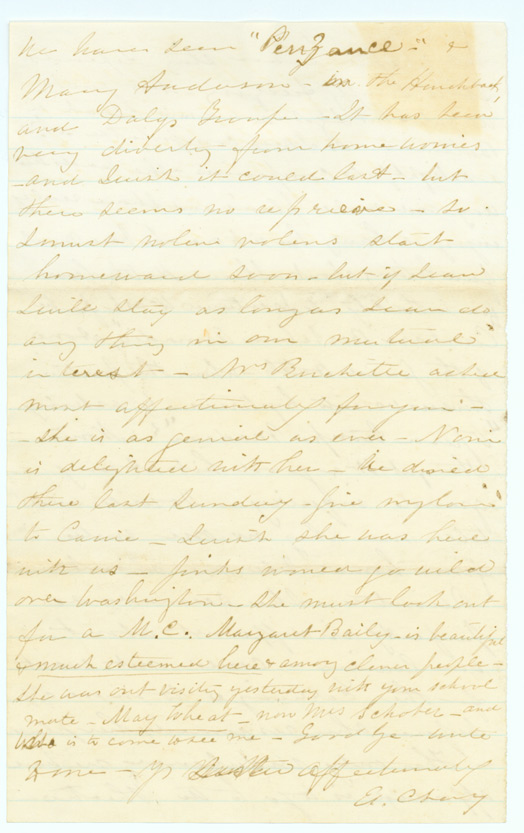 We have seen "Penzance" &
Mary Anderson - in the Hunchback,
and Dalys Troupe - It has been
very diverting from home worries
- and I wish it could last - but
there seems no reprieve - so
I must nolens volens start
homeward soon - but if I can
I will stay as long as I can do
any thing in our mutual
interest - Mrs Buckette asked
most affectionately for you -
- She is as genial as ever - Nonie
is delighted with her - We dined
there last Sunday - Give my love
to Carrie - I wish she was here
with us - Jinks would go wild
over Washington - She must look out
for a M.C. Margaret Baily - is beautiful
& much esteemed here & among clever people -
She was out visiting yesterday with your school
mate - May Wheat - now Mrs Schober - and
who is to come to see me - Good bye - write
to me - Yr affectionately